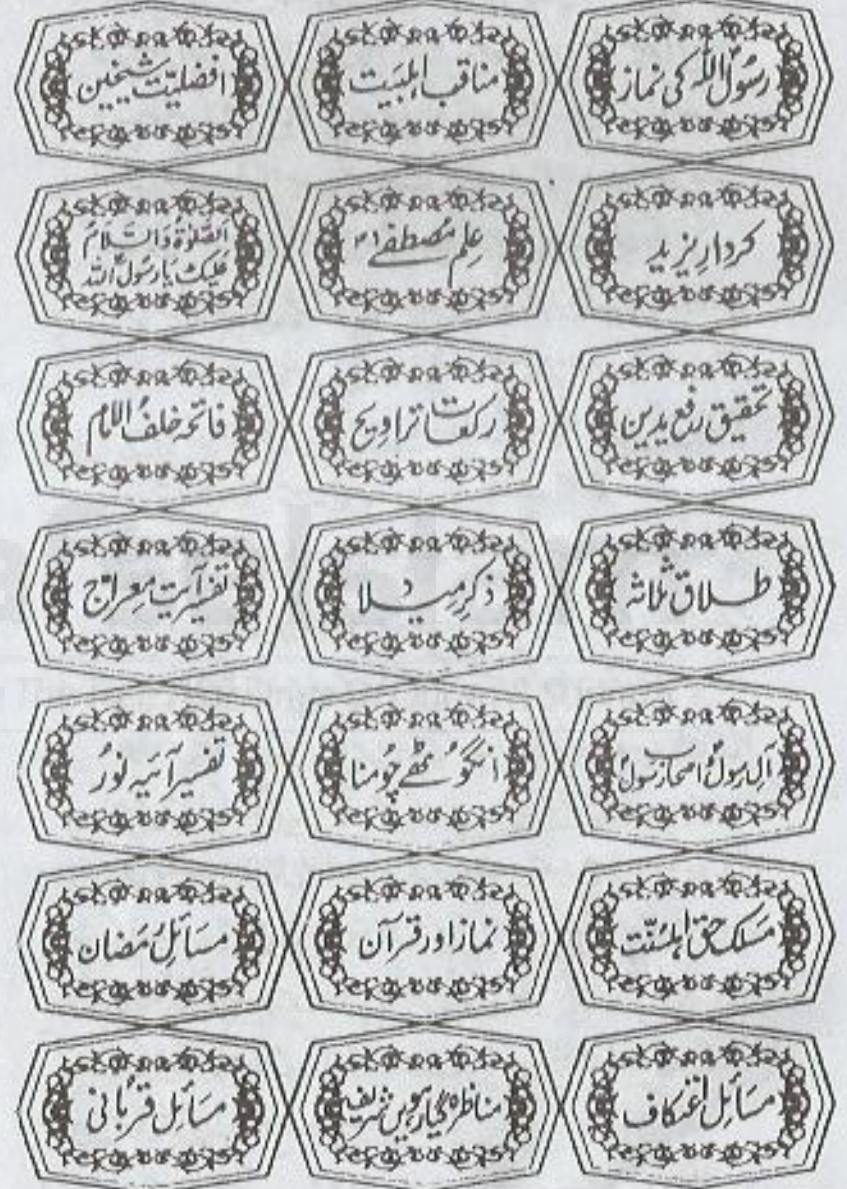 رسول اللہ کی نماز
مناقب اہلبیت
افضلیّت شیخین
کردارِ یزید
علم مصطفےٰ
الصلوٰۃ والسلام
علیک یا رسول اللہ
تحقیق رفع یدین
رکعات تراویح
فاتحہ خلف الامام
طلاق ثلاثہ
ذکرِ میلاد
تفسیر آیت معراج
آلِ رسول و اصحابِ رسول
انگوٹھے چومنا
تفسیر آئیہ نور
مسلک حق اہلسنّت
نماز اور قرآن
مسائل رمضان
مسائل اعتکاف
مناظرہ گیارہویں شریف
مسائل قربانی